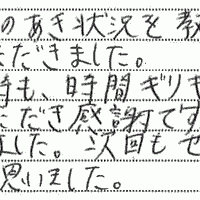 のあき状況を教
ただきました。
時も、時間ギリギ
ただき感謝です
ました。次回もぜ
思いました。